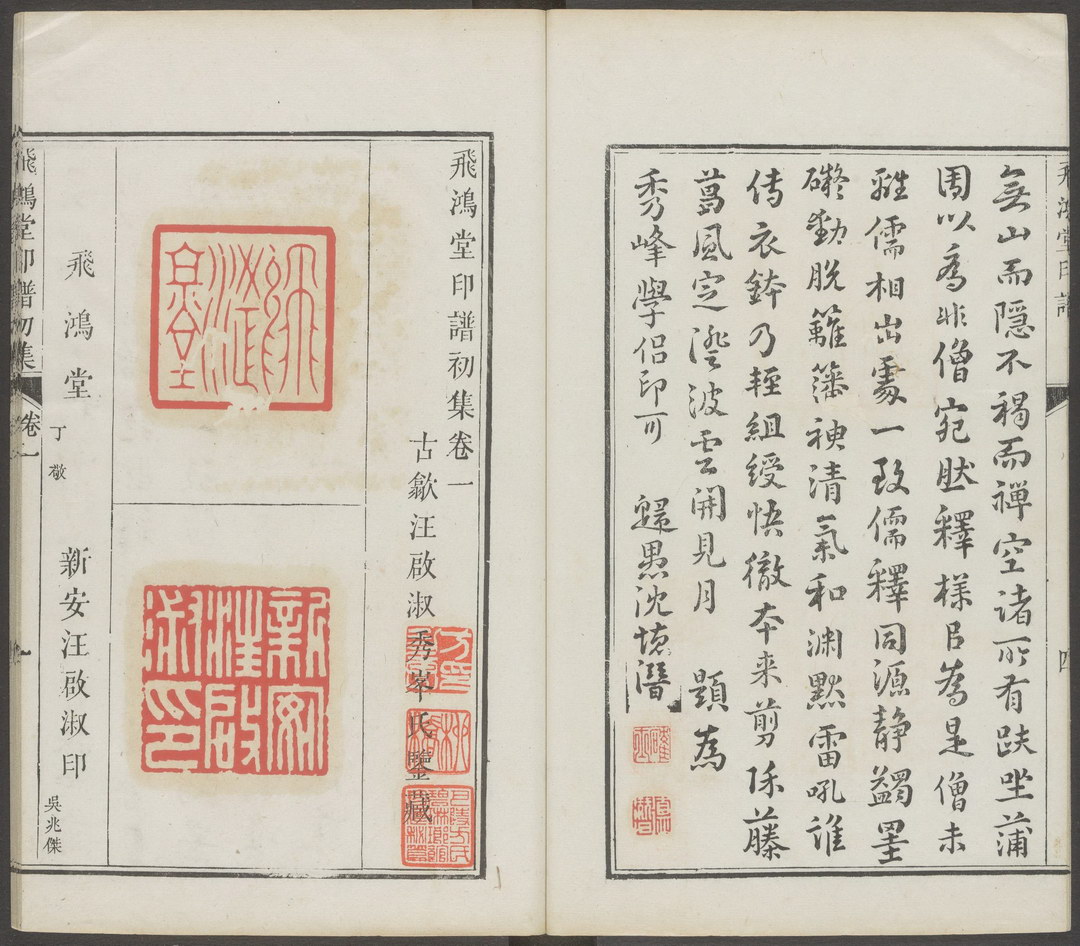 飛鴻堂印譜
四
無山而隱不褐而禪空諸所有趺坐蒲
團以為非僧宛肰釋樣呂為是僧未
離儒相出處一致儒釋同源静蠲塁
礙動脫籬藩神清氣和淵默雷吼誰
傳衣鉢乃輕組綬悟徹本来剪除藤
葛風定澄波雲開見月 題為
秀峰學侣印可 歸愚沈德潛
飛鴻堂印譜初集卷一
古歙汪啟淑秀峯氏鑒藏
飛鴻堂
新安汪啟淑印
飛鴻堂 丁敬 新安汪啟淑印 吳兆傑
飛鴻堂印譜初集 卷一 一